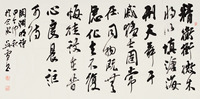 精衛銜微
木将以填滄海
刑天舞干戚
猛志固常
在同物既無
慮化去不復
悔徒設在昔
心良晨詎
可待
陶淵明詩